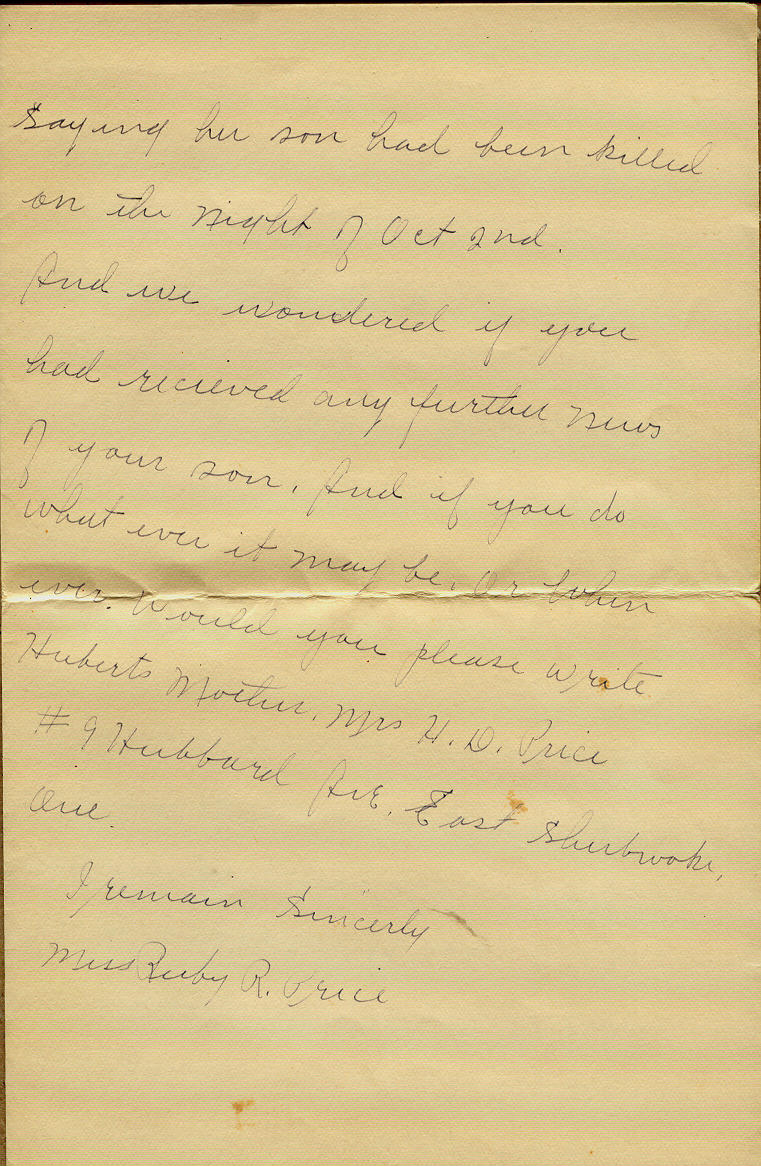 Saying her son had been killed
on the night of Oct 2nd.
And we wondered if you
had recieved any further news
of your son. And if you do
what ever it may be. Or when
ever. Would you please write
Huberts Mother, Mrs H. D. Price
# 9 Hubbard Ave, East Sherbrooke,
Que
I remain Sincerly
Miss Ruby R. Price